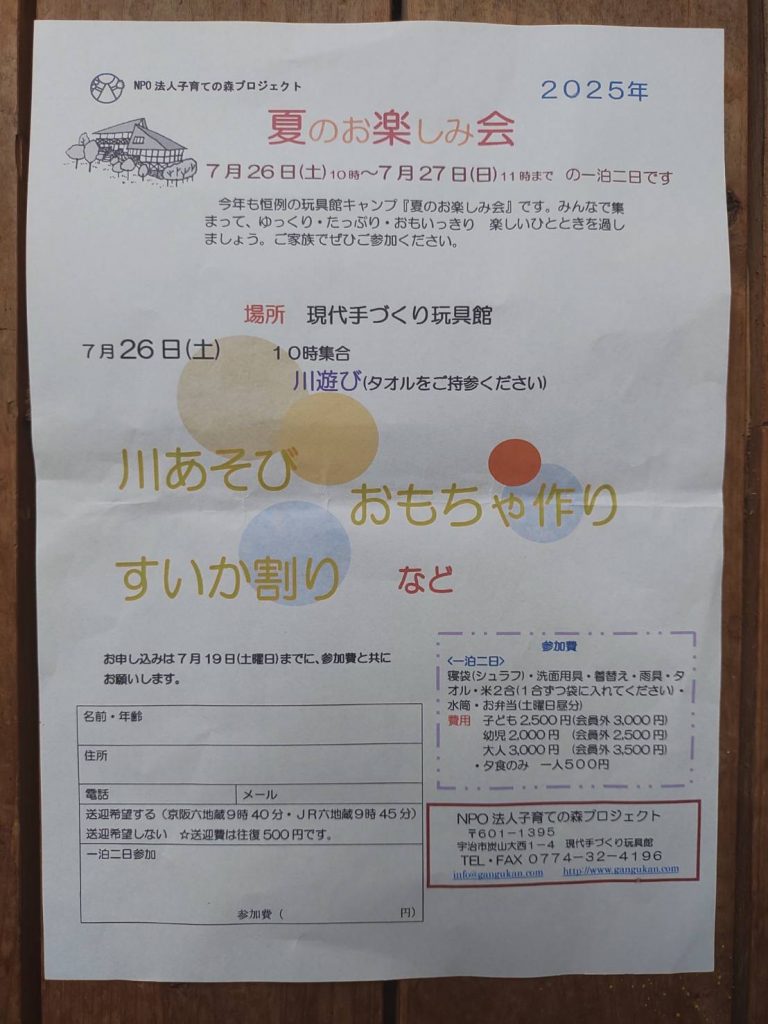 NPO法人子育ての森プロジェクト
2025年
夏のお楽しみ会
7月26日(土)10時～7月27日(日)11時まで の一泊二日です
今年も恒例の玩具館キャンプ『夏のお楽しみ会』です。みんなで集
まって、ゆっくり・たっぷり・おもいっきり 楽しいひとときを過し
ましょう。ご家族でぜひご参加ください。
場所 現代手づくり玩具館
7月26日(土) 10時集合
川遊び(タオルをご持参ください)
川あそび
おもちゃ作り
すいか割り など
お申し込みは7月19日(土曜日)までに、参加費と共に
お願いします。
名前・年齢
住所
電話 メール
送迎希望する(京阪六地蔵9時40分・JR六地蔵9時45分)
送迎希望しない ☆送迎費は往復500円です。
一泊二日参加
参加費( 円)
参加費
<一泊二日>
寝袋(シュラフ)・洗面用具・着替え・雨具・タ
オル・米2合(1合ずつ袋に入れてください)・
水筒・お弁当(土曜日昼分)
費用 子ども2,500円(会員外3,000円)
幼児2,000円 (会員外2,500円)
大人3,000円 (会員外3,500円)
・夕食のみ 一人500円
NPO法人子育ての森プロジェクト
〒601-1395
宇治市炭山大西1-4 現代手づくり玩具館
TEL・FAX 0774-32-4196
info@gangukan.com http://www.gangukan.com